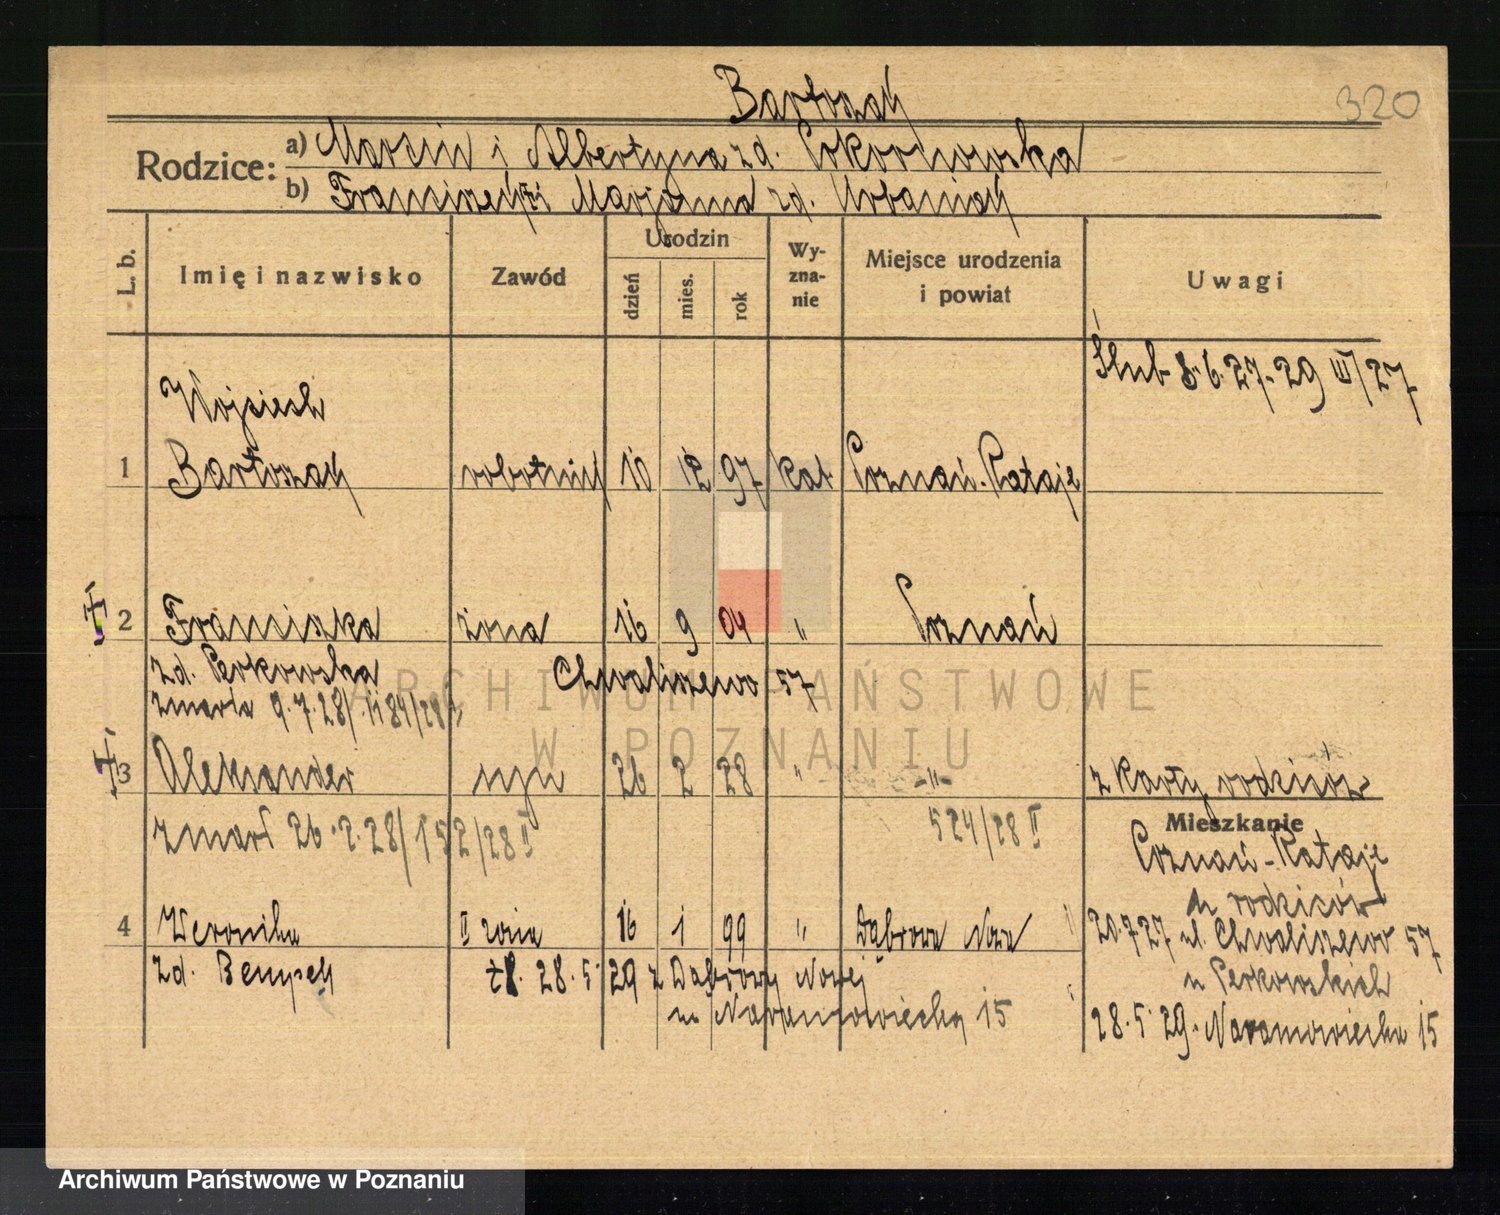 Bartoszak
320
Rodzice: a) Marcin i Albertyna zd. Pokornowska
b) Franciszek i Marjanna zd. Urbaniak
L. b. Imię i nazwisko Zawód Urodzin dzień mies. rok Wy-zna-nie Miejsce urodzenia i powiat Uwagi
Ślub 8.6.27-29 III/27
Wojciech
1 Bartoszak robotnik 10 12 97 kat Poznań-Rataje
2 Franciszka żona 16 9 04 " Poznań
zd. Perkowska Chwaliszewo 57
zmarła 9.7.28/1184/28
3 Aleksander syn 26 2 28 " -"- z karty rodziców
zmarł 26.2.28/152/28 II 524/28 II
Mieszkanie
Poznań-Rataje
u rodziców
4 Weronika II żona 16 1 99 " Dąbrowa Nowa " 20.7.27 ul. Chwaliszewo 57
zd. Benysek 28.5 29 z Dąbrowy Nowej u Perkowskich
na Naramowicką 15 " 28.5.29. Naramowicka 15
ARCHIWUM PAŃSTWOWE
W POZNANIU
Archiwum Państwowe w Poznaniu